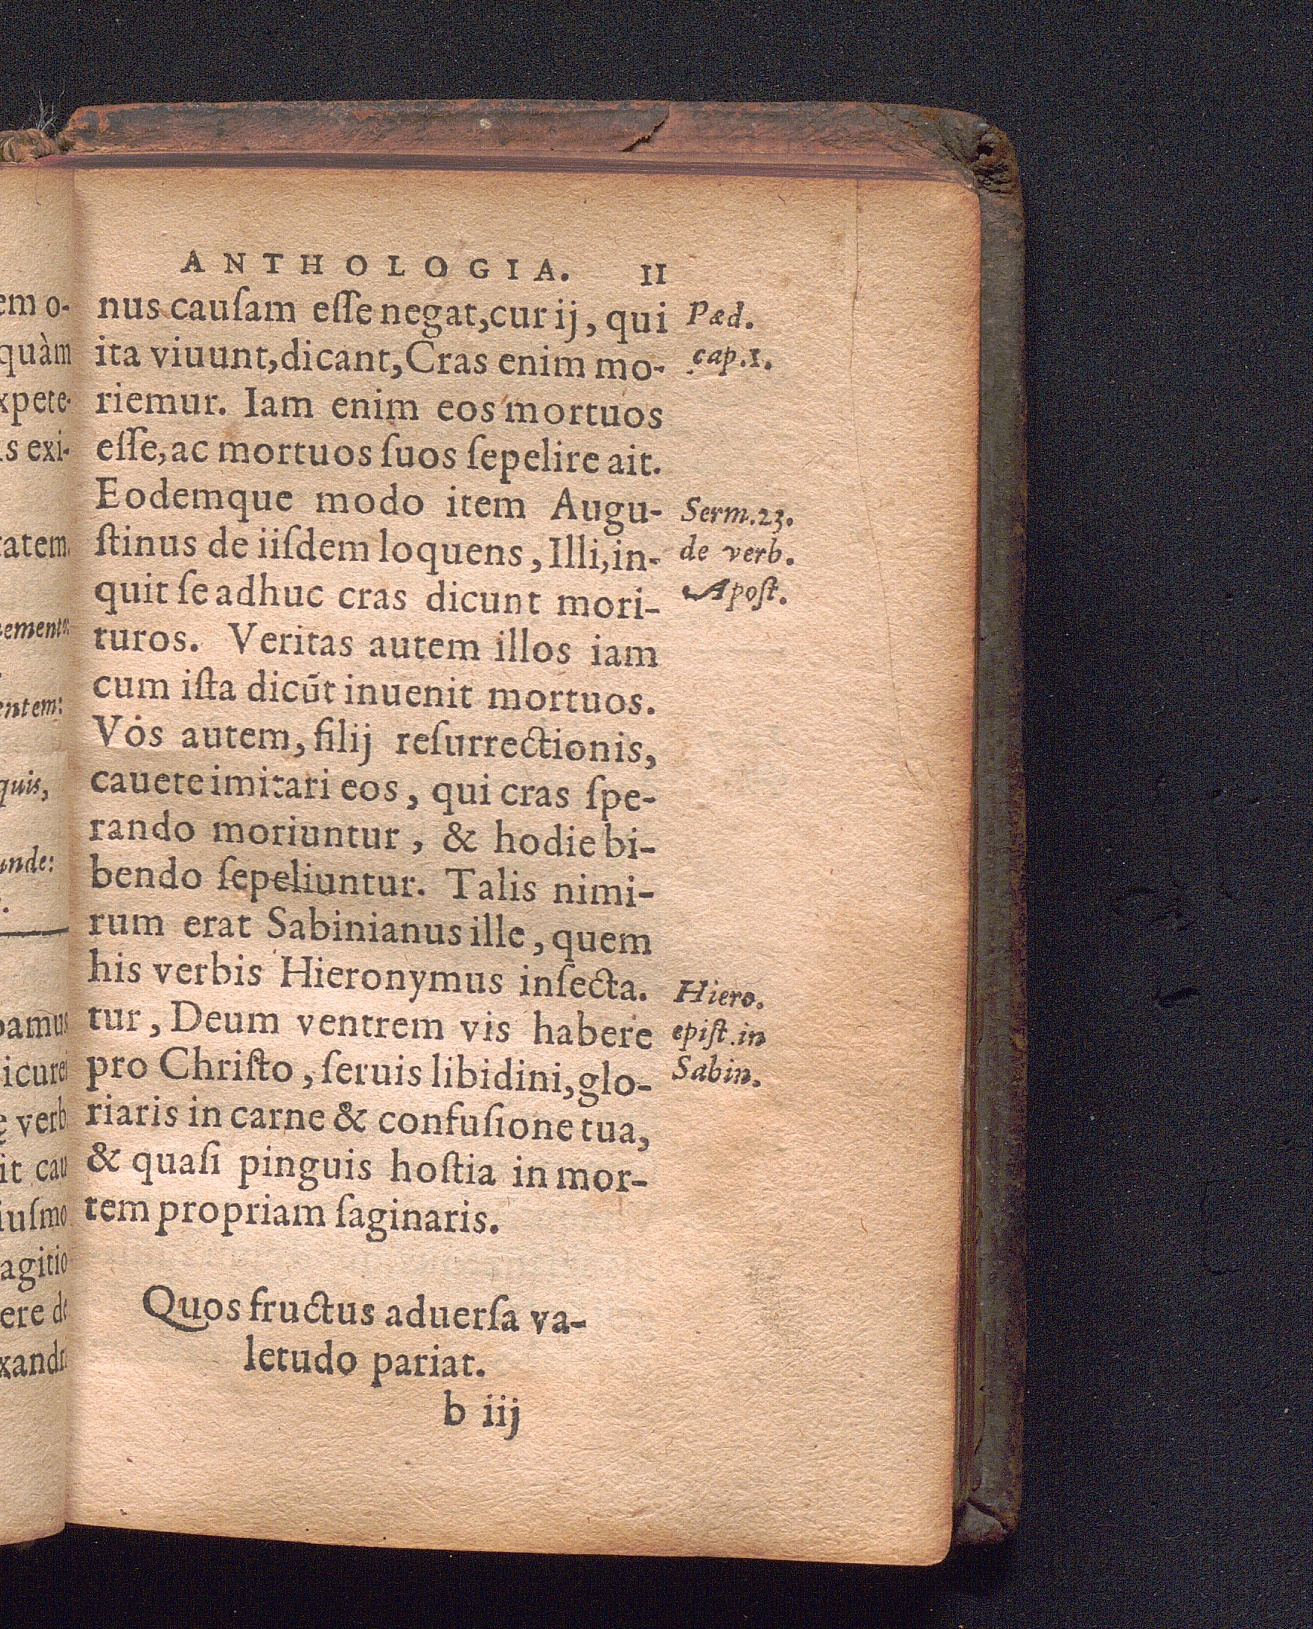 ANTHOLOGIA. II
nus cauſam eſſe negat,cur ij, qui
Pæd.
ita viuunt,dicant,Cras enim mo-
cap.1.
riemur. Iam enim eos mortuos
eſſe,ac mortuos ſuos ſepelire ait.
Eodemque modo item Augu-
Serm.23.
ſtinus de iiſdem loquens, Illi,in-
de verb.
quit ſe adhuc cras dicunt mori-
Apoſt.
turos. Veritas autem illos iam
cum iſta dicūt inuenit mortuos.
Vòs autem, filij reſurrectionis,
cauete imitari eos, qui cras ſpe-
rando moriuntur, & hodie bi-
bendo ſepeliuntur. Talis nimi-
rum erat Sabinianus ille, quem
his verbis Hieronymus inſecta.
Hiero.
tur, Deum ventrem vis habere
epiſt.in
pro Chriſto, ſeruis libidini,glo-
Sabin.
riaris in carne & confuſione tua,
& quaſi pinguis hoſtia in mor-
tem propriam ſaginaris.
Quos fructus aduerſa va-
letudo pariat.
b iij
em o-
quàm
xpete-
s exi-
tatem.
entem:
quis,
unde:
bamus
icure
verb
it cau
iuſmo
agitio
ere de
xandr